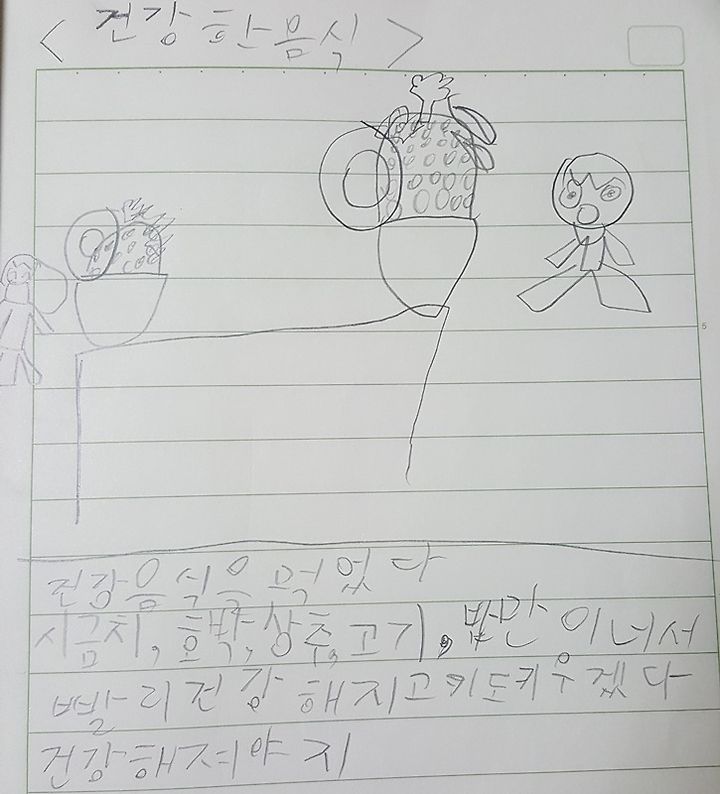 <건강한음식>
건강음식을먹었다
시금치, 호박, 상추, 고기, 밥만이너서
빨리건강해지고키도키우겠다
건강해져야지
5